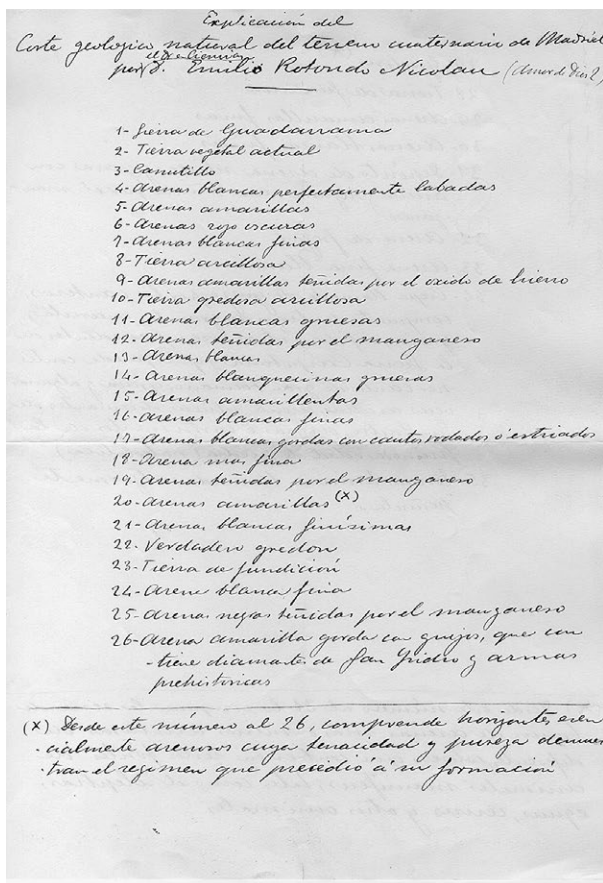 Explicación del
Corte geologico natural del terreno cuaternario de Madrid
por D. Emilio Rotondo Nicolau (Amor de Dios 2,
1- Sierra de Guadarrama
2- Tierra vegetal actual
3- Canutillo
4- Arenas blancas perfectamente labadas
5- Arenas amarillas
6- Arenas rojo oscuras
7- Arenas blancas finas
8- Tierra arcillosa
9- Arenas amarillas teñidas por el oxido de hierro
10- Tierra gredosa arcillosa
11- Arenas blancas gruesas
12- Arenas teñidas por el manganeso
13- Arenas blancas
14- Arenas blanquecinas gruesas
15- Arenas amarillentas
16- Arenas blancas finas
17- Arenas blancas gordas con cantos rodados ó estriados
18- Arena mas fina
19- Arenas teñidas por el manganeso
20- Arenas amarillas (X)
21- Arenas blancas finísimas
22- Verdadero gredon
23- Tierra de fundición
24- Arena blanca fina
25- Arenas negras teñidas por el manganeso
26- Arena amarilla gorda con guijos, que con
-tiene diamantes de San Ysidro y armas
prehistoricas
(X) Desde este número al 26, comprende horizontes esen
-cialmente arenosos cuya tenacidad y pureza demues
-tran el regimen que precedió á su formación